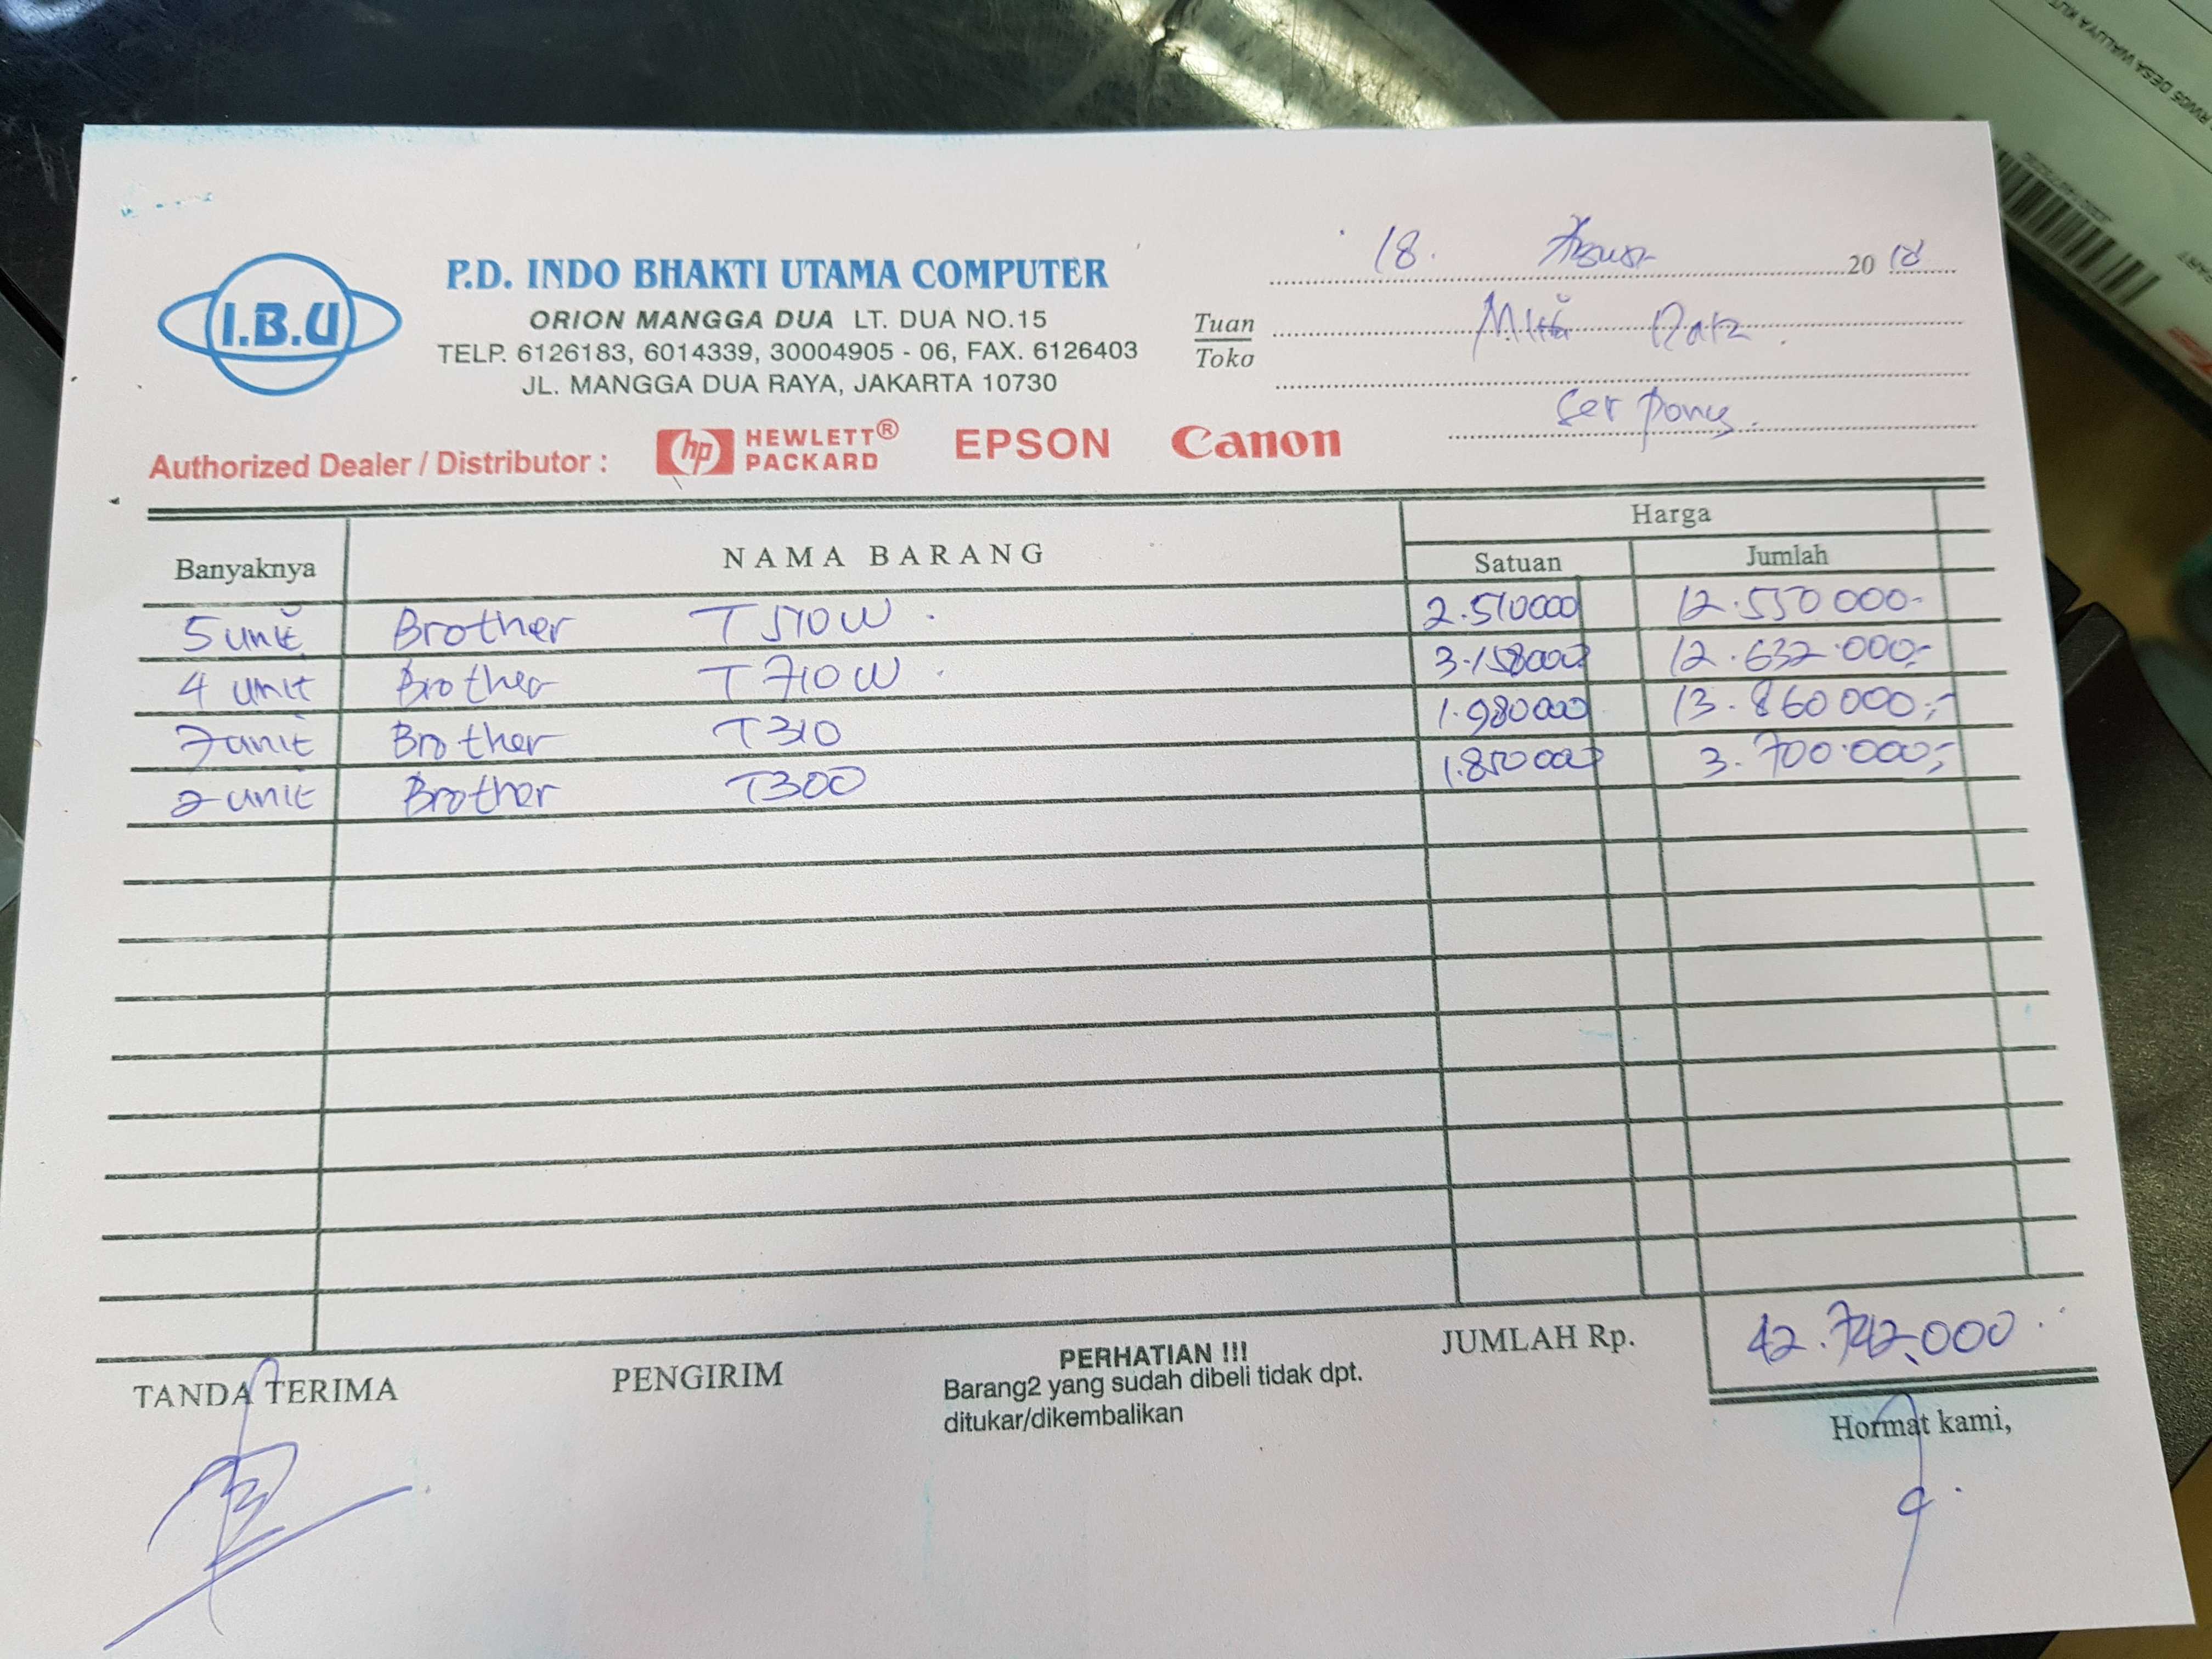 I.B.U
P.D. INDO BHAKTI UTAMA COMPUTER
ORION MANGGA DUA LT. DUA NO.15
TELP. 6126183, 6014339, 30004905 - 06, FAX. 6126403
JL. MANGGA DUA RAYA, JAKARTA 10730
18. 20 18
Tuan
Toko
Serpong.
Authorized Dealer / Distributor : hp HEWLETT® PACKARD EPSON Canon
Banyaknya NAMA BARANG Harga
Satuan Jumlah
5 unit Brother T510W. 2.510000 12.550 000-
4 unit Brother T710W. 3.158000 12.632.000,-
7 unit Brother T310 1.980000 13.860000,-
2 unit Brother T300 1.850000 3.700.000,-
JUMLAH Rp. 42.742.000
TANDA TERIMA PENGIRIM PERHATIAN !!! Hormat kami,
Barang2 yang sudah dibeli tidak dpt.
ditukar/dikembalikan